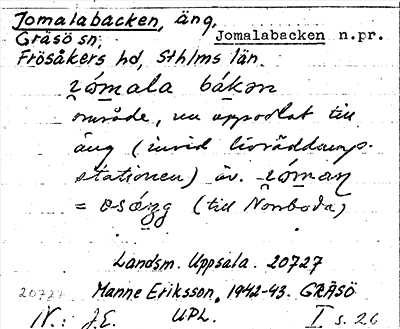 Jomalabacken, äng.
Gräsö sn, Jomalabacken n.pr.
Frösåkers hd, Sthlms län.
område, nu uppodlat till
äng (invid livräddnings-
stationen) äv.
= (till Norrboda)
Landsm. Uppsala. 20727
20727 Manne Eriksson, 1942-43. GRÄSÖ
N.: J.E. UPL. I s. 26